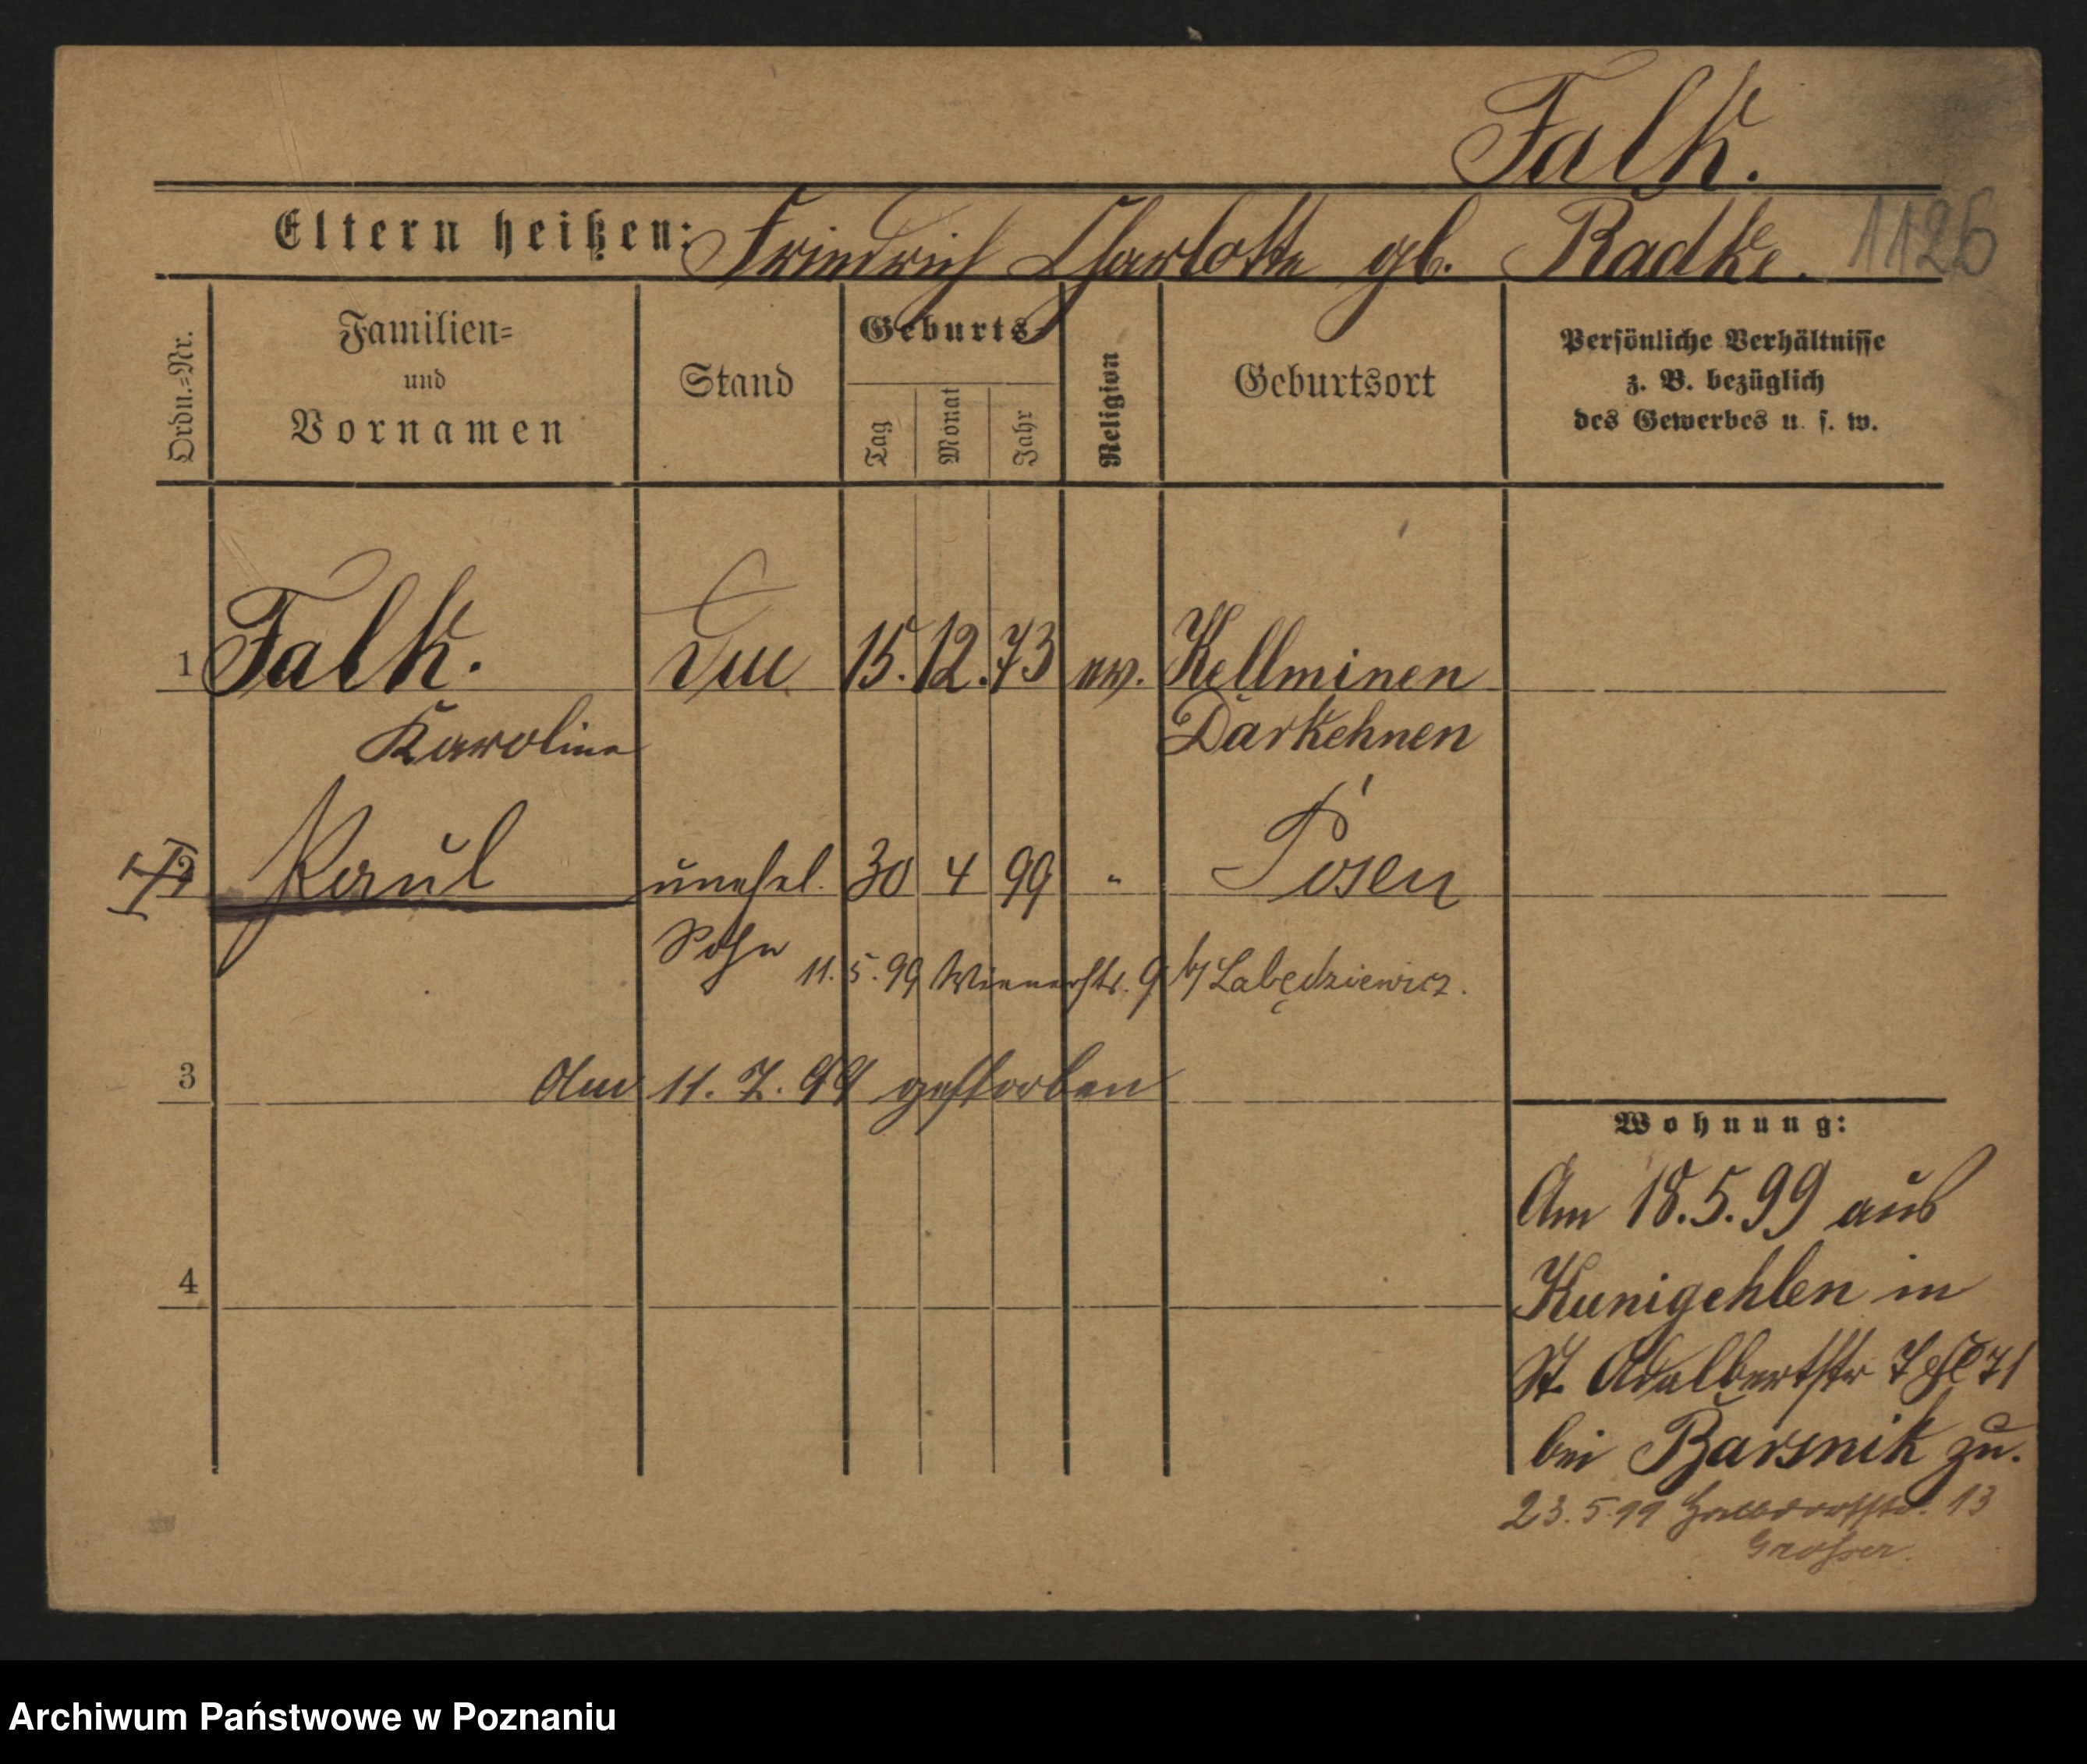 Falk.
Eltern heißen: Friedrich Charlotte gb. Radtke. 1126
Ordn.=Nr.
Familien=
und
Vornamen
Stand
Geburts
Tag
Monat
Jahr
Religion
Geburtsort
Persönliche Verhältnisse
z. B. bezüglich
des Gewerbes u. s. w.
1 Falk. 15. 12. 73 ev. Kellminen
Karoline Darkehnen
2 Paul unehel. 30 4 99 " Posen
Sohn 11. 5. 99 Wienerstr. 9 b/ Łabędziewicz.
3 Am 11. 7. 99 gestorben
4
Wohnung:
Am 18. 5. 99 aus
Kunigehlen in
St. Adalbertstr 7 71
bei Barsnik zu.
23. 5. 99 Halbdorfstr. 13
Grosser.
Archiwum Państwowe w Poznaniu